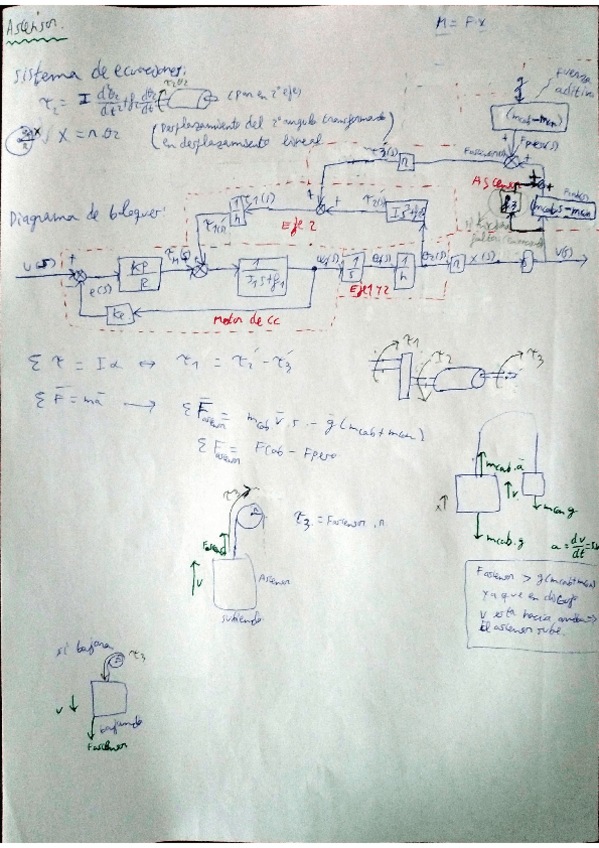 Ascensor.
M = F x
sistema de ecuaciones:
τ2 = I d²θ2/dt² + f2 dθ2/dt
τ2 θ2
(Par en 2º eje)
x = r·θ2
(Desplazamiento del 2º angulo transformado
en desplazamiento lineal
Fuerza
aditiva
g
(mcab-mcon)
Fpeso(s)
Fascensor
τ3(s)
r
Ascensor
Diagrama de bloques:
τ1(s)
1/n
Eje 2
τ2(s)
Is²+f2s
f3
V(s)
e(s)
Kp/R
1/(J1s+f1)
1/s
1/n
θ2(s)
r
x(s)
v(s)
Ke
Motor de CC
Eje 1 y 2
Σ τ = Iα ↔ τ1 = τ2' - τ3'
Σ F = ma → Σ F ascensor = mcab v·s - g(mcab+mcon)
Σ F ascensor = Fcab - Fpeso
τ1
I2
τ3
τ3
r
τ3 = Fascensor · r
v
Ascensor
subiendo
mcab·a
x
v
mcon g
mcab·g
a = dv/dt
Fascensor > g(mcab+mcon)
ya que en dibujo
v esta hacia arriba =>
El ascensor sube.
si bajara
τ3
v
bajando
Fascensor